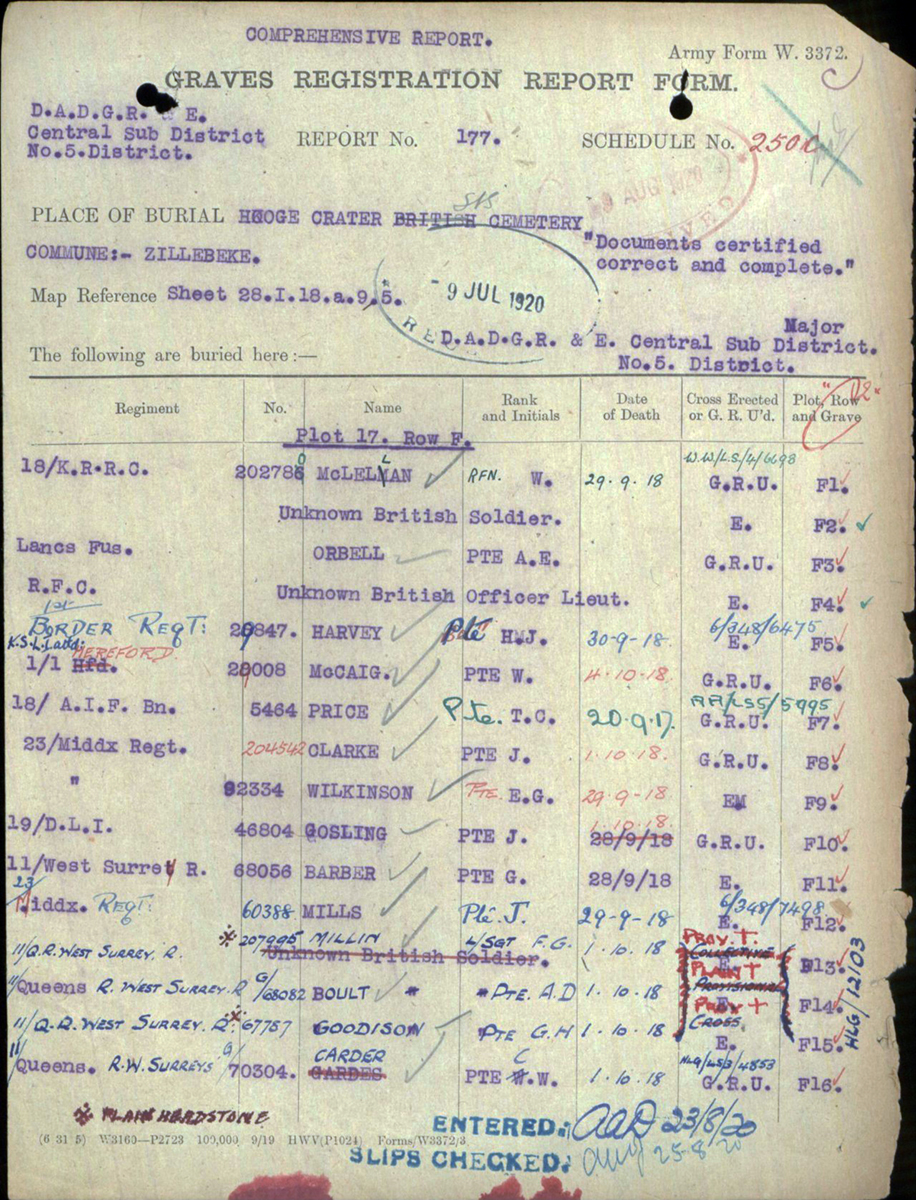 COMPREHENSIVE REPORT.
Army Form W. 3372.
GRAVES REGISTRATION REPORT FORM.
D.A.D.G.R. & E.
Central Sub District
No.5.District.
REPORT No. 177.
SCHEDULE No. 250
9 AUG 1920
PLACE OF BURIAL HOOGE CRATER BRITISH CEMETERY
COMMUNE:- ZILLEBEKE.
"Documents certified
correct and complete."
Map Reference Sheet 28.I.18.a.9.5.
- 9 JUL 1920
Major
D.A.D.G.R. & E. Central Sub District.
No.5. District.
The following are buried here :—
Regiment No. Name Rank and Initials Date of Death Cross Erected or G. R. U'd. Plot, Row and Grave
Plot 17. Row F.
W.W/L.S/4/6698
18/K.R.R.C. 202780 McLELLAN RFN. W. 29.9.18 G.R.U. F1.
Unknown British Soldier. E. F2.
Lancs Fus. ORBELL PTE A.E. G.R.U. F3.
R.F.C. Unknown British Officer Lieut. E. F4.
1st BORDER REGT: 29847. HARVEY Pte H.J. 30-9-18. 6/348/6475 E. F5.
K.S.L.I. attd: HEREFORD
1/1 Hfd. 28008 McCAIG. PTE W. 4.10.18. G.R.U. F6.
18/ A.I.F. Bn. 5464 PRICE Pte. T.C. 20.9.17. AA/LSS/5995 G.R.U. F7.
23/Middx Regt. 204542 CLARKE PTE J. 1.10.18. G.R.U. F8.
" 92334 WILKINSON Pte. E.G. 29-9-18. EM F9.
19/D.L.I. 46804 GOSLING PTE J. 1.10.18. 28/9/18 G.R.U. F10.
11/West Surrey R. 68056 BARBER PTE G. 28/9/18 E. F11.
23/Middx. REGT: 60388 MILLS Pte. J. 29-9-18 6/348/7498 F12.
11/Q.R.WEST SURREY. R. 207995 MILLIN L/SGT F.G. 1.10.18 PROV. + COLLECTIVE E. F13.
Unknown British Soldier.
11/Queens R. WEST SURREY. R G/68082 BOULT " " PTE. A.D 1.10.18 PLAIN + PROVISIONAL E. F14.
11/Q.R. WEST SURREY. R. 67757 GOODISON PTE G.H 1.10.18 PROV + CROSS E. F15.
HLG/12103
11/Queens. R.W.SURREYS G/70304. CARDER GARDES PTE C.W. 1.10.18 HLG/LSB/4853 G.R.U. F16.
PLAIN HEADSTONE
(6 31 5) W3160—P2723 100,000 9/19 HWV(P1024) Forms/W3372/3
ENTERED: AAD 23/8/20
SLIPS CHECKED: 25-8-20